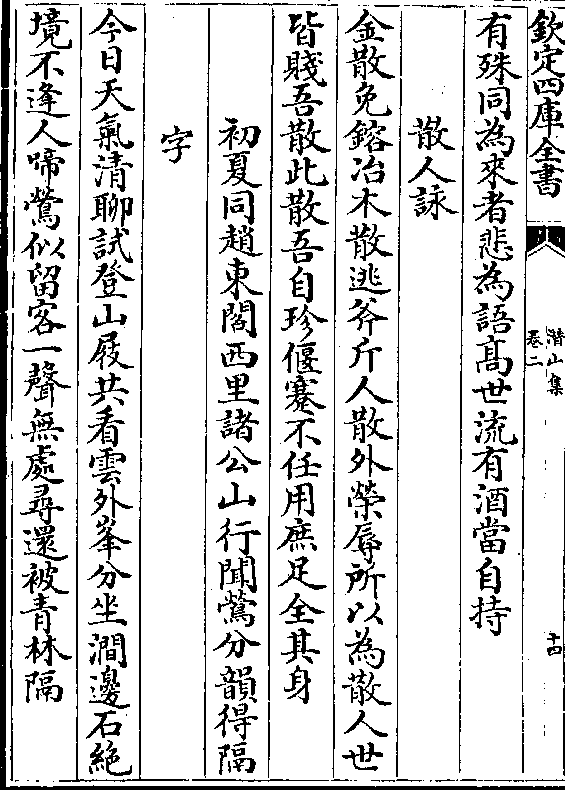 欽定四庫全書
潛山集
卷二
十四
有殊同為來者悲為語髙世流有酒當自持
散人詠
金散免鎔冶木散逃斧斤人散外榮辱所以為散人世
皆賤吾散此散吾自珍偃蹇不任用庶足全其身
初夏同趙東閣西里諸公山行聞鶯分韻得隔
字
今日天氣清聊試登山屐共看雲外峯分坐澗邊石絶
境不逢人啼鶯似留客一聲無處尋還被青林隔